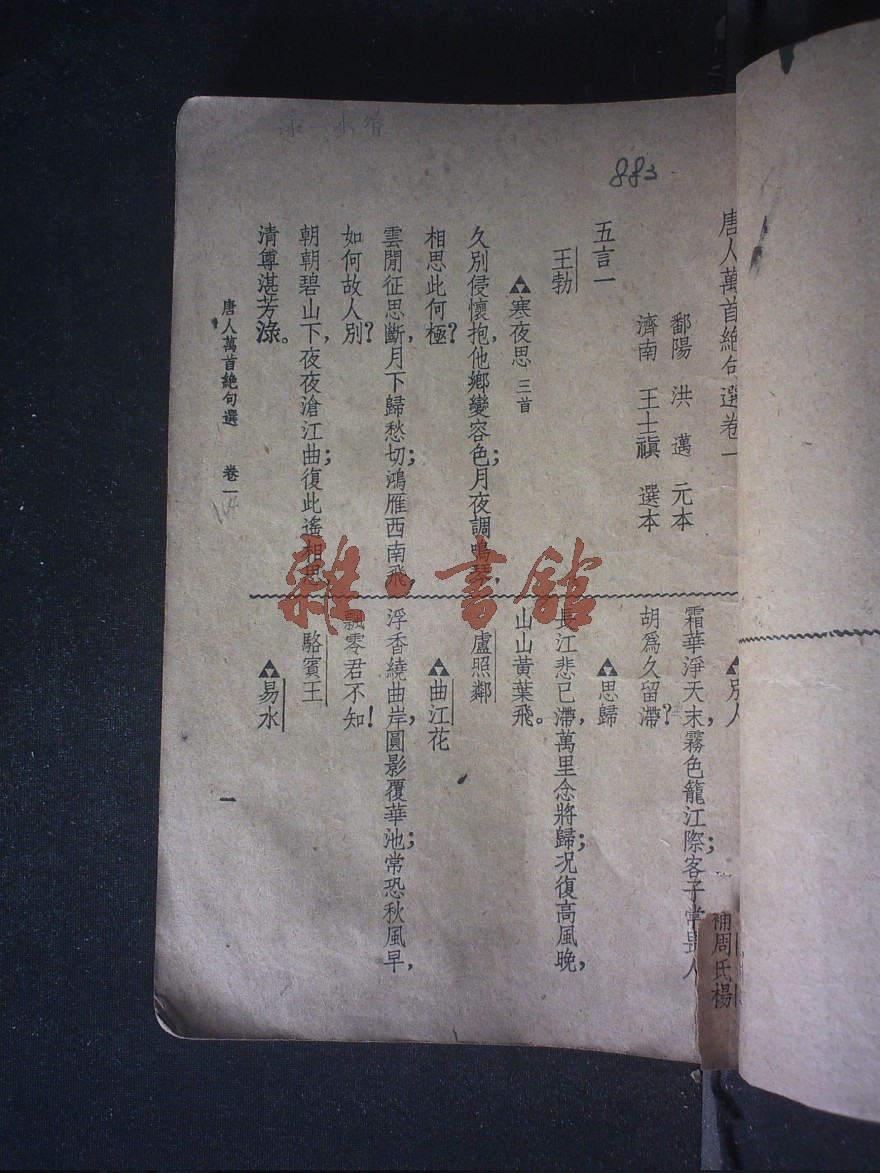 唐人萬首絕句選卷一
鄱陽 洪邁 元本
濟南 王士禛 選本
五言一
王勃
▲寒夜思 三首
久別侵懷抱,他鄉變容色;月夜調鳴琴,
相思此何極?
雲閒征思斷,月下歸愁切;鴻雁西南飛,
如何故人別?
朝朝碧山下,夜夜滄江曲;復此遙相思,
清尊湛芳淥。
▲別人
霜華淨天末,霧色籠江際;客子常畏人
胡爲久留滯?
▲思歸
長江悲已滯,萬里念將歸;况復高風晚,
山山黃葉飛。
盧照鄰
▲曲江花
浮香繞曲岸,圓影覆華池;常恐秋風早,
飄零君不知!
駱賓王
▲易水
唐人萬首絕句選 卷一
一
883
補周氏楊
雜·書館